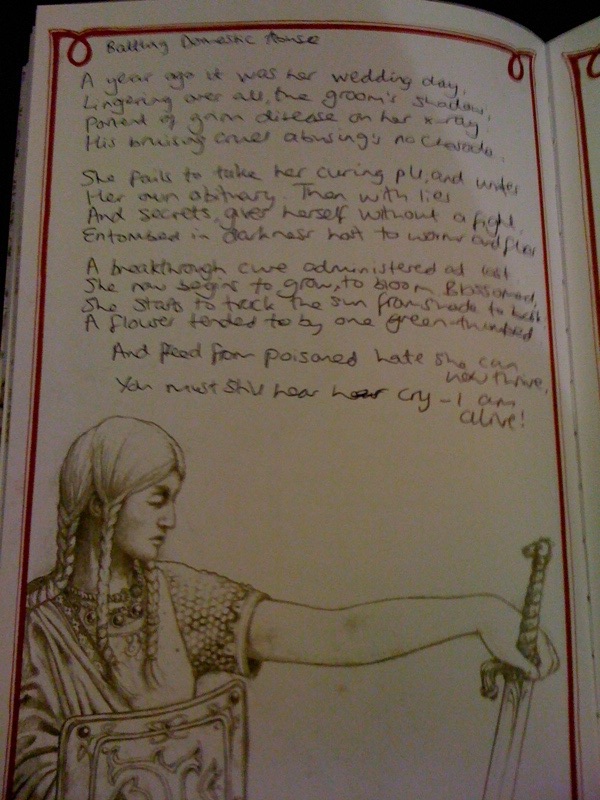 Battling Domestic Abuse
A year ago it was her wedding day,
Lingering over all, the groom's shadow,
Portent of grim disease on her x-ray.
His bruising cruel abusing's no charade.
She fails to take her curing pill, and writes
Her own obituary. Then with lies
And secrets, gives herself without a fight.
Entombed in darkness host to worms and flies
A breakthrough cure administered at last
She now begins to grow, to bloom Blossomed,
She starts to track the sun from shade to
A flower tended to by one green-thumbed
And freed from poisoned hate she can
now thrive,
You must still hear her cry - I am
alive!